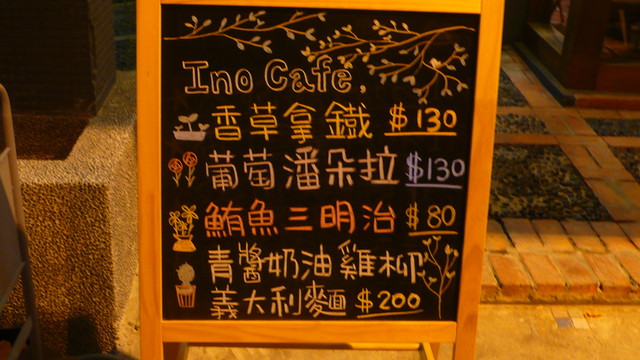 Ino Cafe,
香草拿鐵 $130
葡萄潘朵拉 $130
鮪魚三明治 $80
青醬奶油雞柳
義大利麵 $200